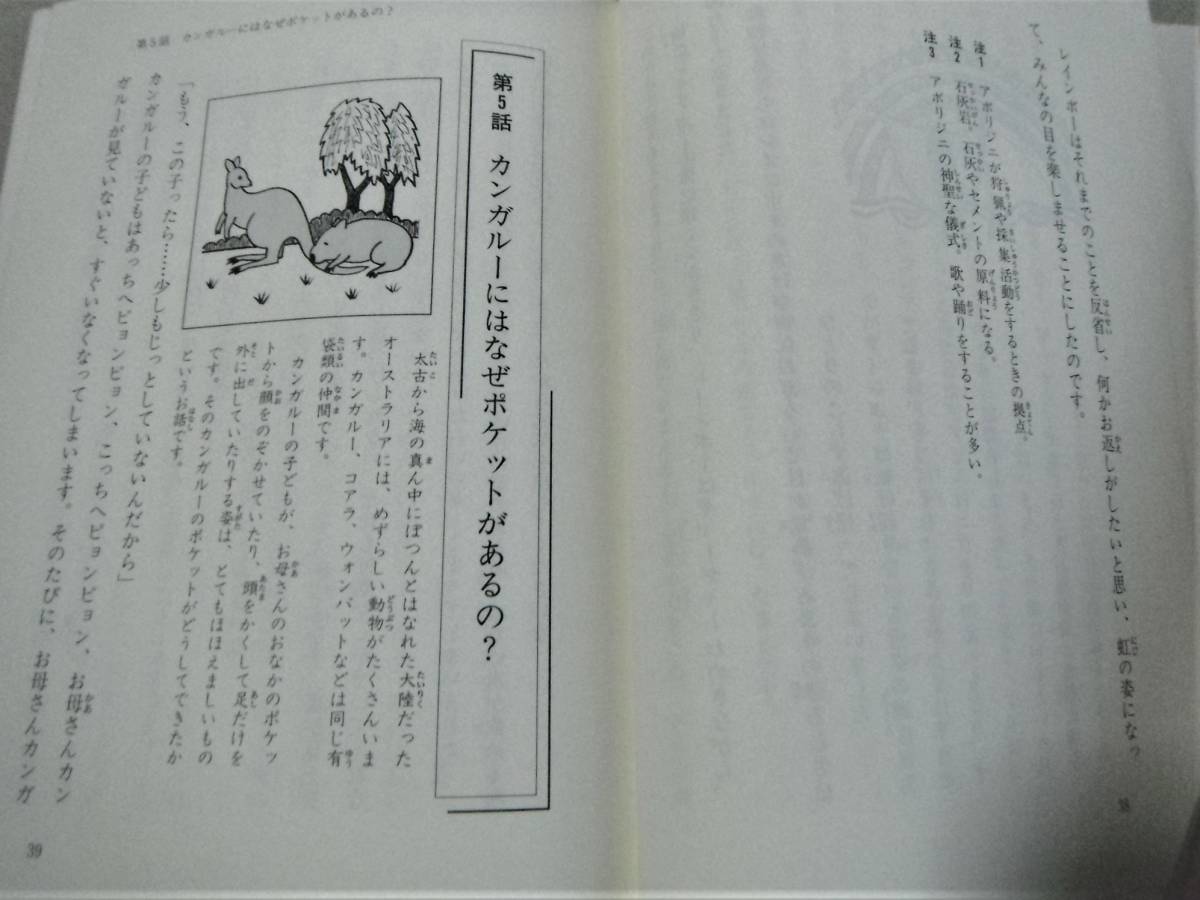 レインボーはそれまでのことを反省し、何かお返しがしたいと思い、虹の姿になっ
て、みんなの目を楽しませることにしたのです。
注1 アボリジニが狩猟や採集活動をするときの拠点。
注2 石灰岩。石灰やセメントの原料になる。
注3 アボリジニの神聖な儀式。歌や踊りをすることが多い。
38
第5話 カンガルーにはなぜポケットがあるの？
第5話 カンガルーにはなぜポケットがあるの？
太古から海の真ん中にぽつんとはなれた大陸だった
オーストラリアには、めずらしい動物がたくさんいま
す。カンガルー、コアラ、ウォンバットなどは同じ有
袋類の仲間です。
カンガルーの子どもが、お母さんのおなかのポケッ
トから顔をのぞかせていたり、頭をかくして足だけを
外に出していたりする姿は、とてもほほえましいもの
です。そのカンガルーのポケットがどうしてできたか
というお話です。
「もう、この子ったら……少しもじっとしていないんだから」
カンガルーの子どもはあっちへピョンピョン、こっちへピョンピョン、お母さんカン
ガルーが見ていないと、すぐいなくなってしまいます。そのたびに、お母さんカンガ
39